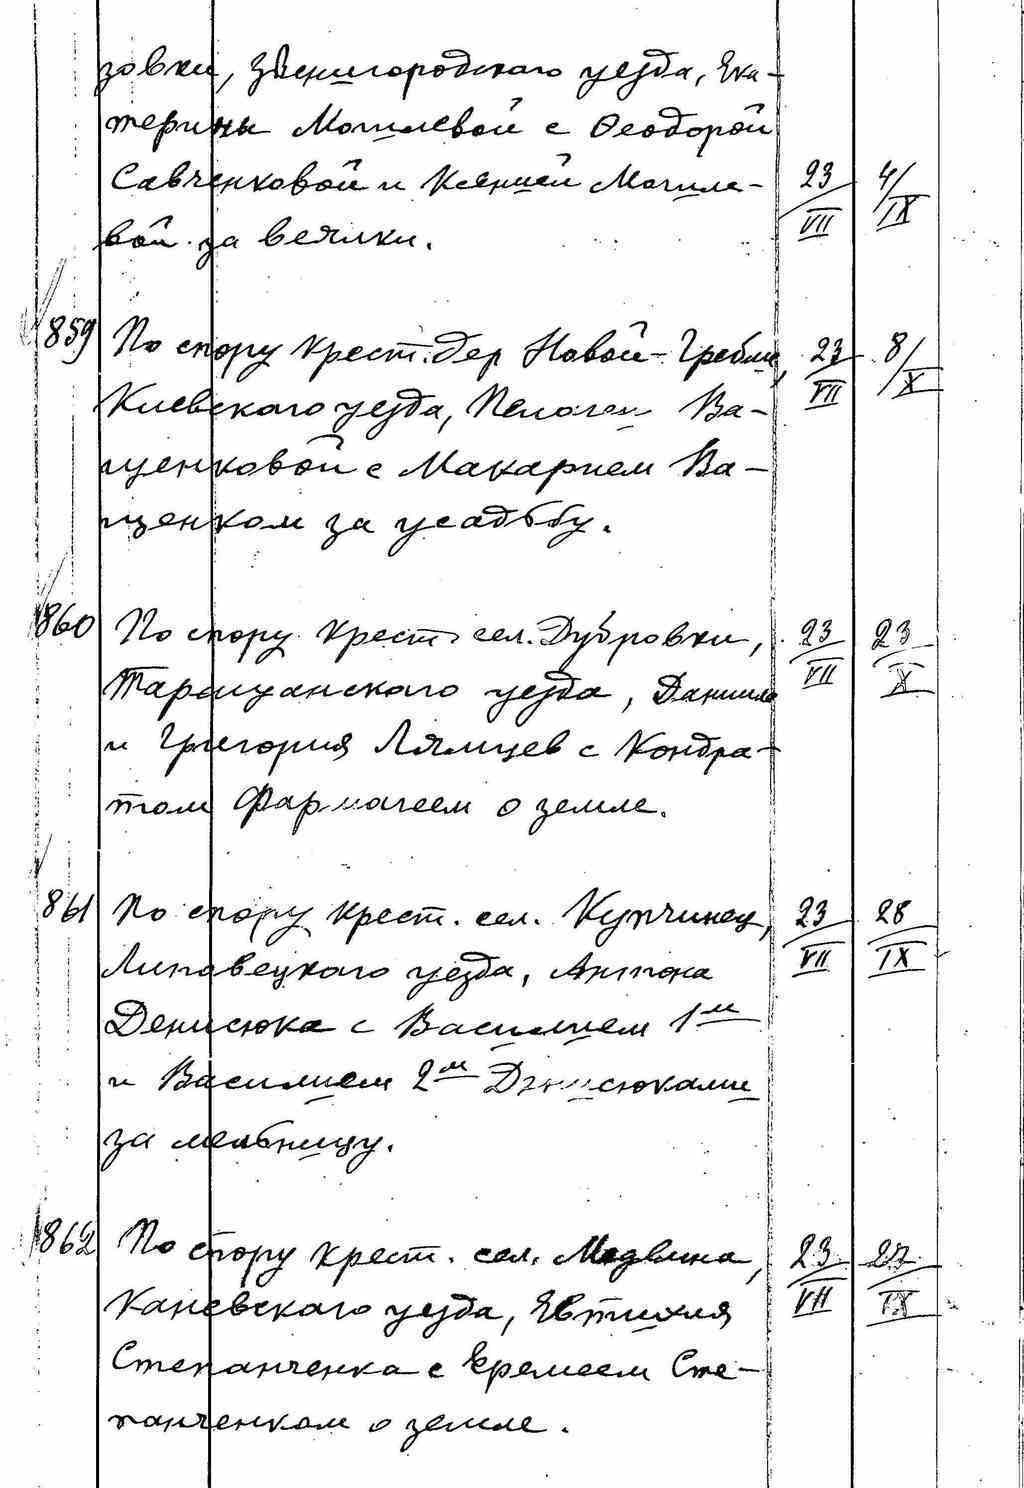 зовки, Звенигородского уезда, Ека-
терины Могилевой с Феодорой
Савченковой и Ксенией Могиле-
вой за вещики.
23/VII 4/IX
859 По спору крест. дер Новой-Гребли, 23/VII 8/X
Киевского уезда, Пелагеи Ва-
щенковой с Макарием Ва-
щенком за усадьбу.
860 По спору крест. сел. Дубровки, 23/VII 23/X
Таращанского уезда, Даниила
и Григория Лямцев с Кондра-
том Фармагеем о земле.
861 По спору крест. сел. Купчинец, 23/VII 28/IX
Липовецкого уезда, Антона
Денисюка с Василием 1м
и Василием 2м Денисюками
за мельницу.
862 По спору крест. сел. Медвина, 23/VII 27/IX
Каневского уезда, Евтихия
Степанченка с Еремеем Сте-
панченком о земле.